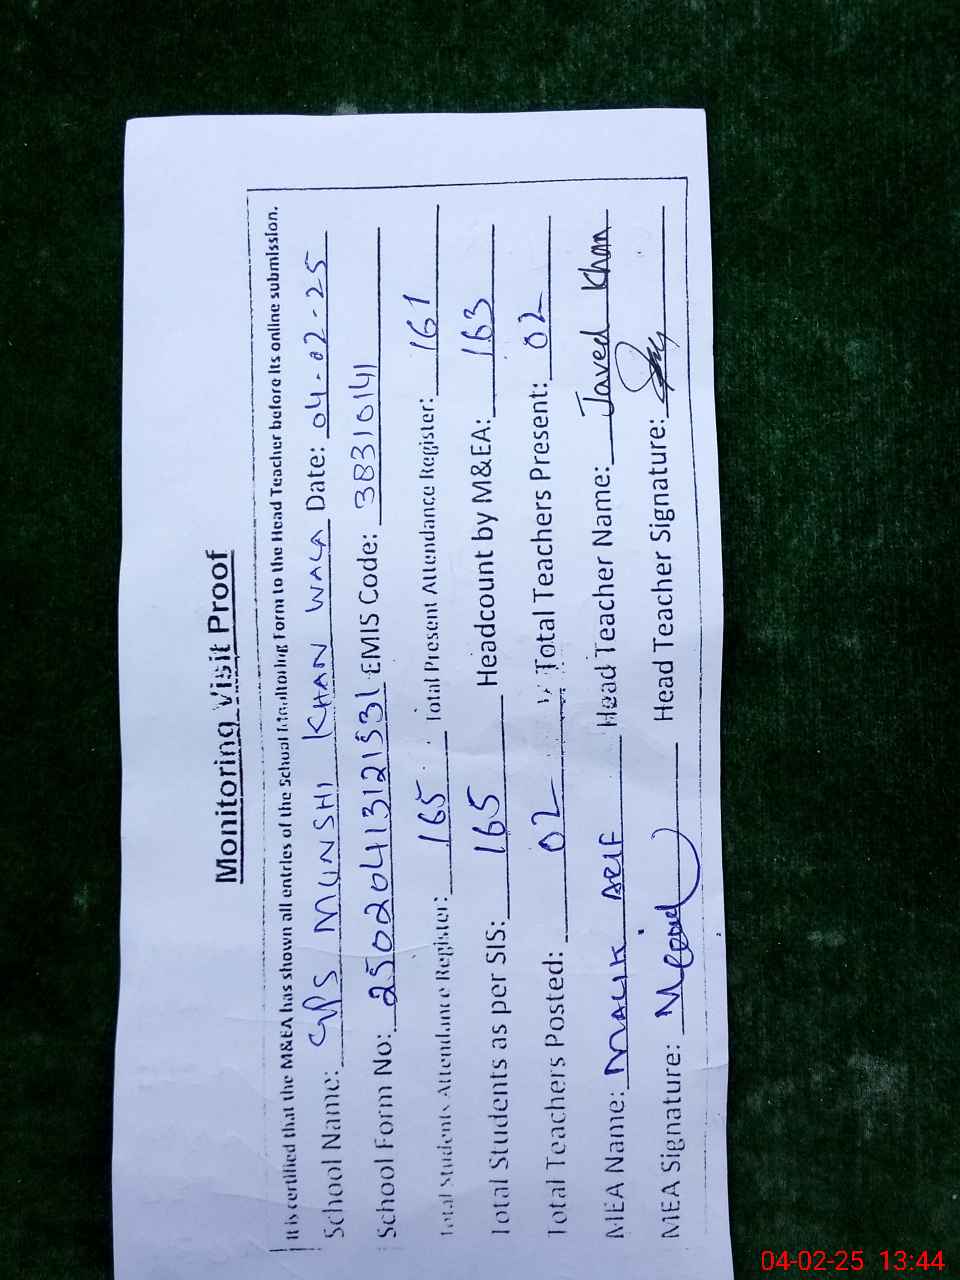 Monitoring Visit Proof
It is certified that the M&EA has shown all entries of the School Monitoring Form to the Head Teacher before its online submission.
School Name: GPS MUNSHI KHAN WALA Date: 04-02-25
School Form No: 25020413121531 EMIS Code: 38310141
Total Students Attendance Register: 165 Total Present Attendance Register: 161
Total Students as per SIS: 165 Headcount by M&EA: 163
Total Teachers Posted: 02 Total Teachers Present: 02
MEA Name: MALIK ARIF Head Teacher Name: Javed Khan
MEA Signature: Head Teacher Signature:
04-02-25 13:44